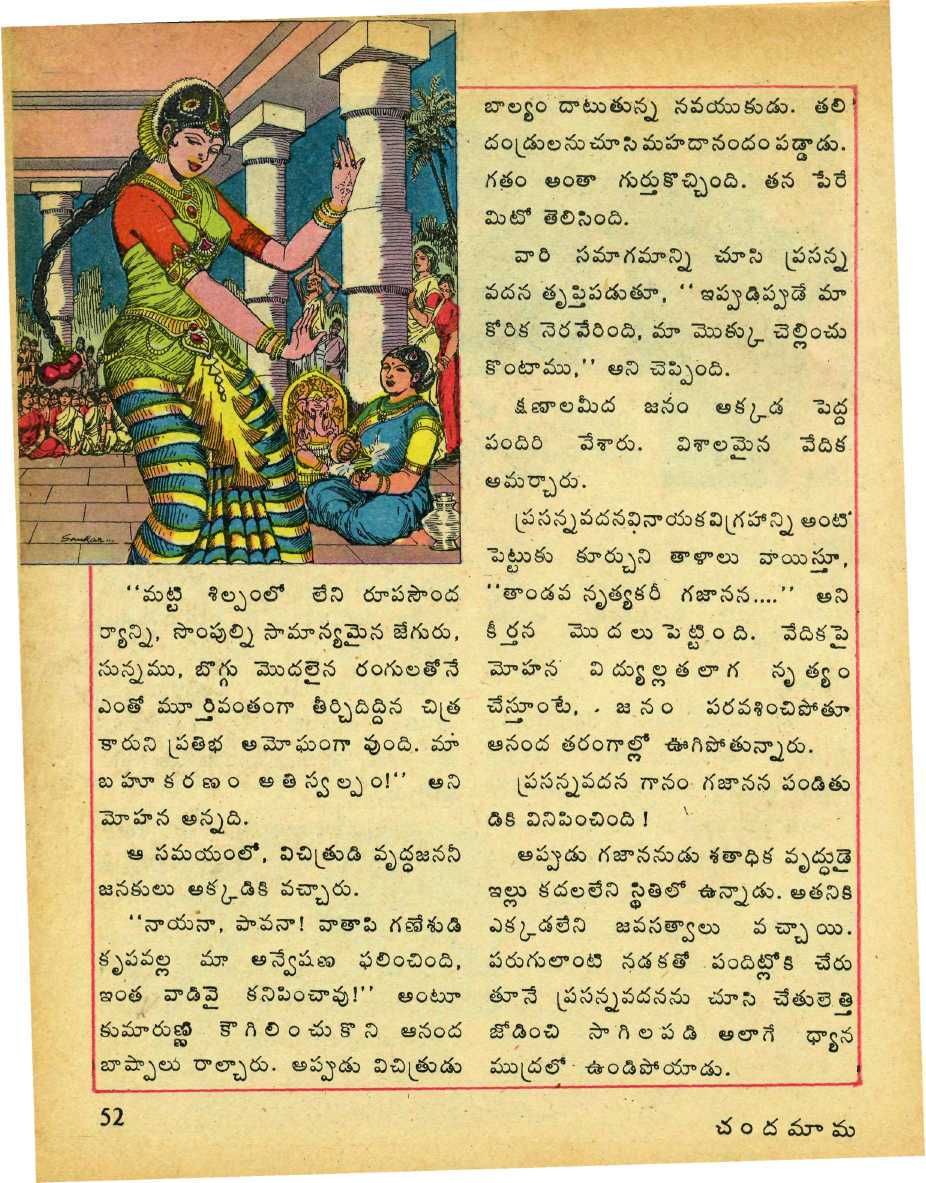 Sankar...
“మట్టి శిల్పంలో లేని రూపసౌంద
ర్యాన్ని, సొంపుల్ని సామాన్యమైన జేగురు,
సున్నము, బొగ్గు మొదలైన రంగులతోనే
ఎంతో మూర్తివంతంగా తీర్చిదిద్దిన చిత్ర
కారుని ప్రతిభ అమోఘంగా వుంది. మా
బహూకరణం అతిస్వల్పం!” అని
మోహన అన్నది.
ఆ సమయంలో, విచిత్రుడి వృద్ధజననీ
జనకులు అక్కడికి వచ్చారు.
“నాయనా, పావనా! వాతాపి గణేశుడి
కృపవల్ల మా అన్వేషణ ఫలించింది,
ఇంత వాడివై కనిపించావు!” అంటూ
కుమారుణ్ణి కౌగిలించుకొని ఆనంద
బాష్పాలు రాల్చారు. అప్పుడు విచిత్రుడు
బాల్యం దాటుతున్న నవయుకుడు. తలి
దండ్రులనుచూసిమహదానందంపడ్డాడు.
గతం అంతా గుర్తుకొచ్చింది. తన పేరే
మిటో తెలిసింది.
వారి సమాగమాన్ని చూసి ప్రసన్న
వదన తృప్తిపడుతూ, “ఇప్పుడిప్పుడే మా
కోరిక నెరవేరింది, మా మొక్కు చెల్లించు
కొంటాము,” అని చెప్పింది.
క్షణాలమీద జనం అక్కడ పెద్ద
పందిరి వేశారు. విశాలమైన వేదిక
అమర్చారు.
ప్రసన్నవదనవినాయకవిగ్రహాన్ని అంటి
పెట్టుకు కూర్చుని తాళాలు వాయిస్తూ,
“తాండవ నృత్యకరీ గజానన....” అని
కీర్తన మొదలుపెట్టింది. వేదికపై
మోహన విద్యుల్లతలాగ నృత్యం
చేస్తూంటే, జనం పరవశించిపోతూ
ఆనంద తరంగాల్లో ఊగిపోతున్నారు.
ప్రసన్నవదన గానం గజానన పండితు
డికి వినిపించింది!
అప్పుడు గజాననుడు శతాధిక వృద్ధుడై
ఇల్లు కదలలేని స్థితిలో ఉన్నాడు. అతనికి
ఎక్కడలేని జవసత్వాలు వచ్చాయి.
పరుగులాంటి నడకతో పందిట్లోకి చేరు
తూనే ప్రసన్నవదనను చూసి చేతులెత్తి
జోడించి సాగిలపడి అలాగే ధ్యాన
ముద్రలో ఉండిపోయాడు.
52
చందమామ